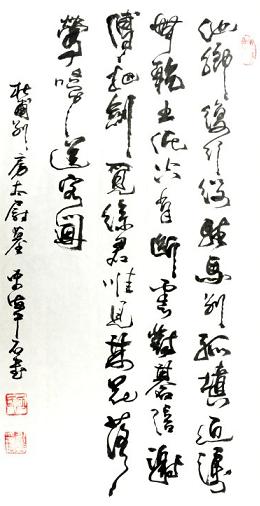 他鄉復行役駐馬別孤墳近淚
無乾土低空有斷雲對碁陪謝
傅把劍覓徐君唯見林花落
鶯啼送客聞
杜甫別房太尉墓 石書